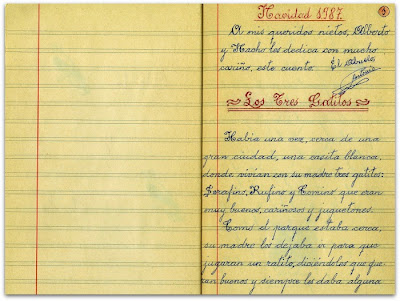 Navidad 1987
A mis queridos nietos, Alberto
y Nacho les dedica con mucho
cariño, este cuento. El Abuelo
Antonio
Los Tres Gatitos
Había una vez, cerca de una
gran cuidad, una casita blanca,
donde vivían con su madre tres gatitos:
Serafino, Rufino y Comino que eran
muy buenos, cariñosos y juguetones.
Como el parque estaba cerca,
su madre los dejaba ir para que
jugaran un ratito, diciéndoles que fue
ran buenos y siempre les daba alguna